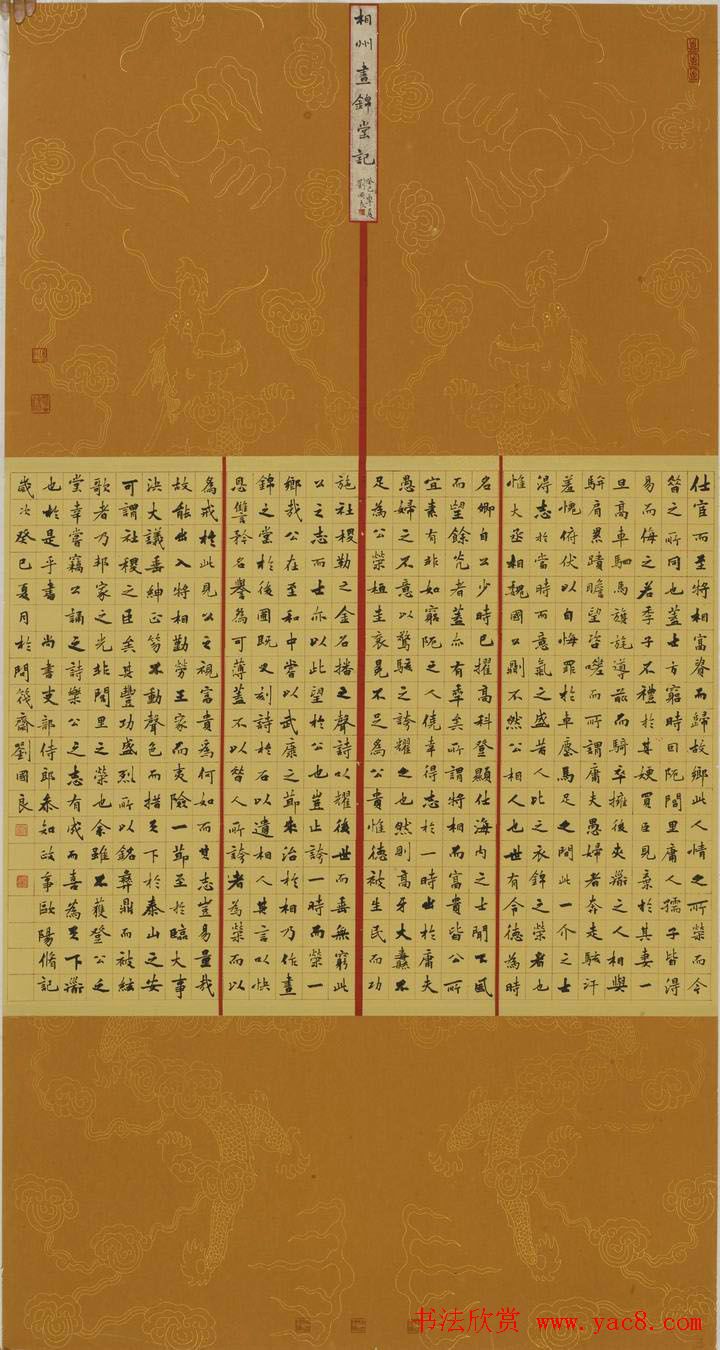 相州晝錦堂記
癸巳孟夏
劉國良
仕宦而至將相富貴而歸故鄉此人情之所榮而今
昝之所同也蓋士方窮時困阨閭里庸人孺子皆得
易而侮之若季子不禮於其嫂買臣見棄於其妻一
旦高車駟馬旗旄導前而騎卒擁後夾道之人相與
駢肩累蹟瞻望咨嗟而所謂庸夫愚婦者奔走駭汗
羞愧俯伏以自悔罪於車塵馬足之間此一介之士
得志於當時而意氣之盛昔人比之衣錦之榮者也
惟大丞相魏國公則不然公相人也世有令德為時
名卿自公少時已擢高科登顯仕海內之士聞下風
而望餘光者蓋亦有年矣所謂將相而富貴皆公所
宜素有非如窮阨之人僥幸得志於一時出於庸夫
愚婦之不意以驚駭之誇耀之也然則高牙大纛不
足為公榮桓圭袞冕不足為公貴惟德被生民而功
施社稷勒之金石播之聲詩以耀後世而垂無窮此
公之志而士亦以此望於公也豈止誇一時而榮一
鄉哉公在至和中嘗以武康之節來治於相乃作晝
錦之堂於後圃既又刻詩於石以遺相人其言以快
恩讐矜名譽為可薄蓋不以昝人所誇者為榮而以
為戒於此見公之視富貴為何如而其志豈易量哉
故能出入將相勤勞王家而夷險一節至於臨大事
決大議垂紳正笏不動聲色而措天下於泰山之安
可謂社稷之臣矣其豐功盛烈所以銘彝鼎而被絃
歌者乃邦家之光非閭里之榮也余雖不獲登公之
堂幸嘗竊公誦之詩樂公之志有成而喜為天下道
也於是乎書 尚書吏部侍郎參知政事歐陽脩記
歲次癸巳夏月於問筏齋劉國良
书法欣赏 www.yac8.com